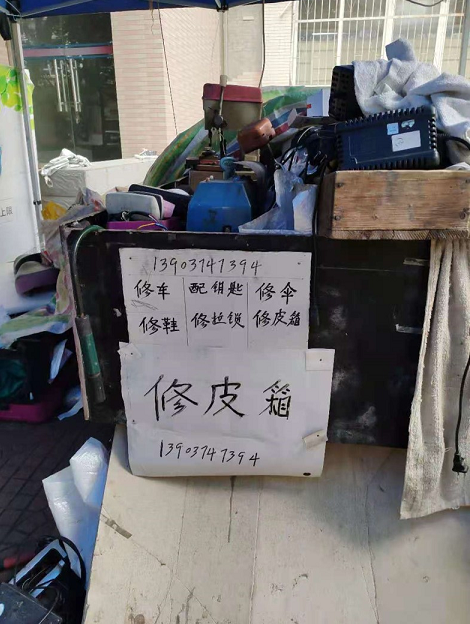 13903747394
修车 配钥匙 修伞
修鞋 修拉锁 修皮箱
修皮箱
13903747394